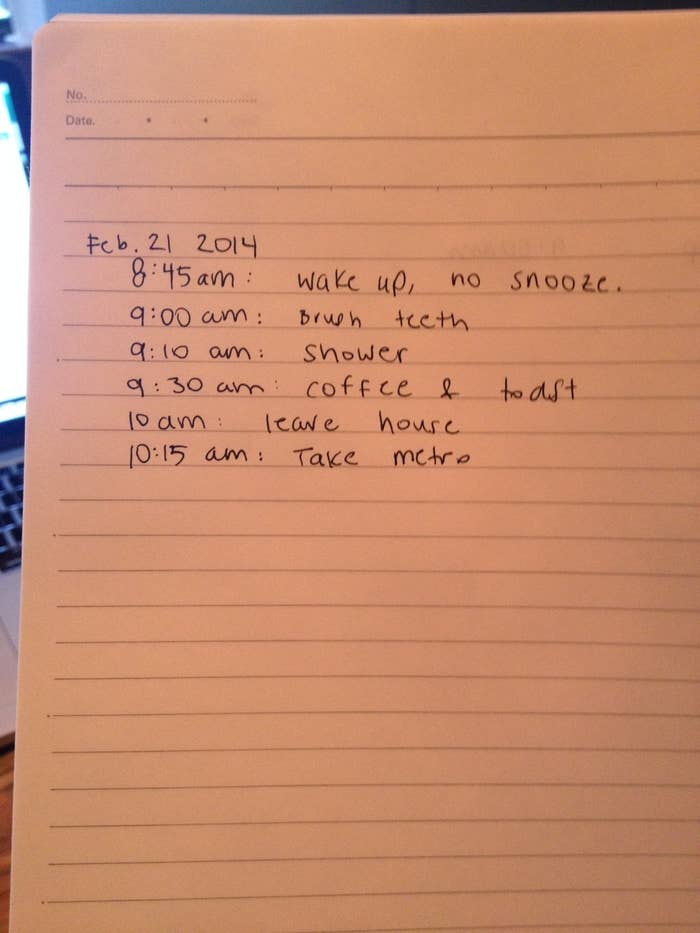 No.
Date.
Feb. 21 2014
8:45am: wake up, no snooze.
9:00 am: Brush teeth
9:10 am: shower
9:30 am: coffee & toast
10 am: leave house
10:15 am: Take metro